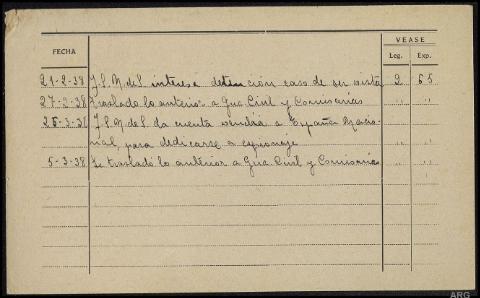 VEASE
FECHA Leg. Exp.
21-2-38 J.S.M. del S. interesa detención caso de ser vista 2 65
27-2-38 traslado lo anterior a Gua Civil y Comisarías " "
25-3-38 J.S.M. del S. da cuenta vendrá a España Nacio- " "
nal para dedicarse a espionaje
5-3-38 Se traslado lo anterior a Gua. Civil y Comisarías " "
ARG